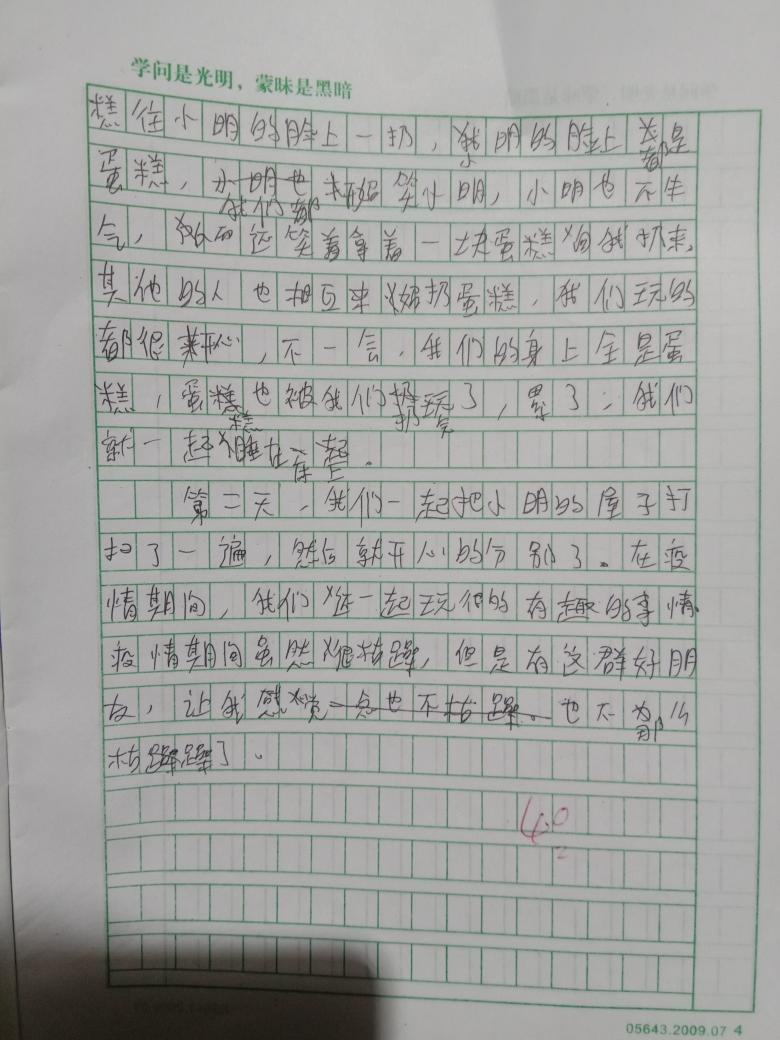 学问是光明，蒙昧是黑暗
糕往小明的脸上一扔，小明的脸上都是
蛋糕，我们都开始笑小明，小明也不生
气，而还笑着拿着一块蛋糕向我扔来，
其他的人也相互开始扔蛋糕，我们玩的
都很开心，不一会，我们的身上全是蛋
糕，蛋糕也被我们扔完了，累了，我们
就一起睡在床上．
第二天，我们一起把小明的屋子打
扫了一遍，然后就开心的分别了。在疫
情期间，我们还一起玩很的有趣的事情．
疫情期间虽然很枯躁，但是有这群好朋
友，让我感觉也不那么
枯躁了。
40
05643.2009.07 4